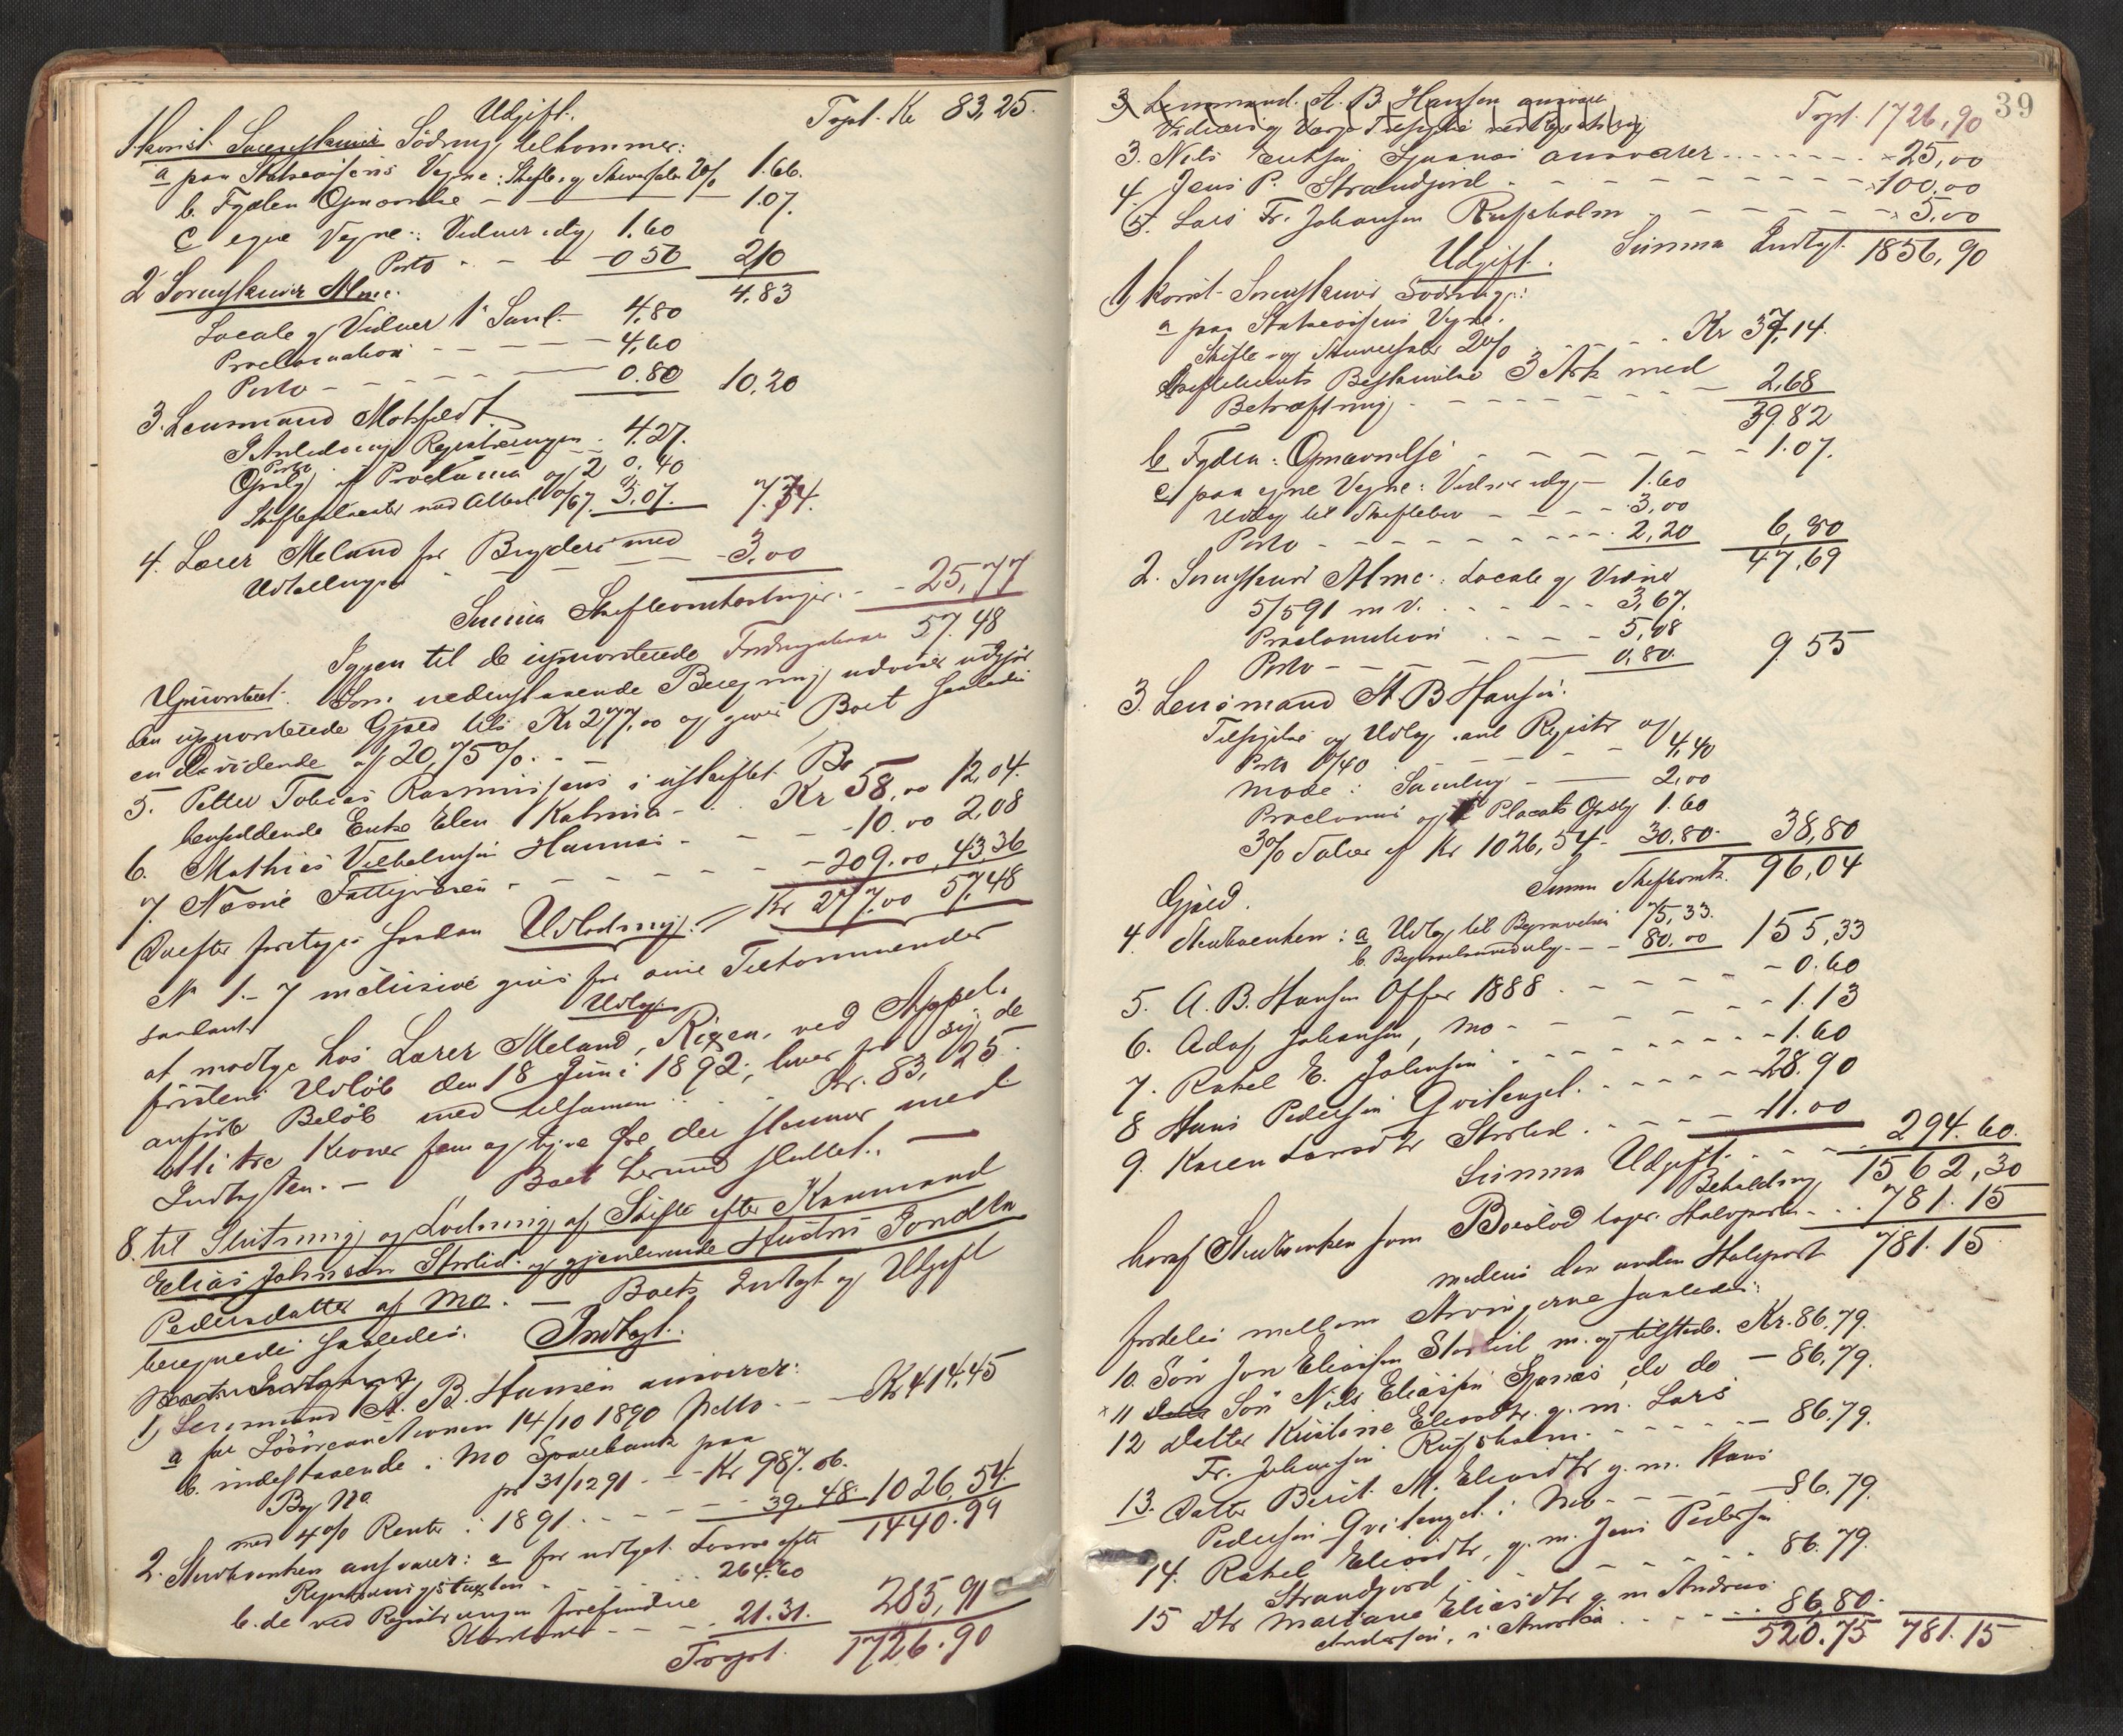 Udgift. Trpt. Kr 83,25.
1. Konst. Sorenskriver Södring tilkommer:
a paa Statscassens Vegne: Skifte og Skriversalær 2% 1.66.
b. Fogdens Opnævnelse - 1.07.
c egne Vegne: Vidner udlg 1.60
Porto - - - 0 50 210
4,83
2 Sorenskriver Alme.
Locale og Vidner 1ste Saml. 4,80
Proclamation - - - 4,60
Porto - - - 0.80 10,20
3. Lensmand Motsfeldt.
I Anledning Registreringen - 4.27.
Porto
Opslg af Proclama og 2 0.40
Skiftesalær med Attest 0/67. 3,07. 7.74.
4. Lærer Meland for Bryderi med
Udtællingen - - 3,00
Summa Skifteomkostninger. - 25,77
Igjen til de uprioriterede Fordringshaver 57.48
Uprioriteret. Som nedenstaaende Beregning udviser udgjør
den uprioriterede Gjæld tils Kr 277,00 og giver Boet saaledes
en Dividende af 20,75%. -
5. Petter Tobias Rasmussens i uskiftet Bo
hensiddende Enke Elen Katrina - Kr 58,00 12,04.
6. Mathias Vilhelmsen Hamnæs - - - 10.00 2,08
7. Næsne Fattigvæsen - - - - 209.00 43,36
Kr 277.00 57,48
Derefter foretoges saadan Udlodning:
No 1.- 7 inclusive gives for sine Tilkommender
saalunde Udlæg
at modtage hos Lærer Meland, Rigen, ved Appel.
fristens Udløb den 18 Juni 1892, hver for sig de
anførte Beløb med tilsammen . . . Kr. 83,25.
otti tre Kroner fem og tyve Øre der stemmer med
Indtægten. - Boet hermed sluttet. -
8. til Slutning og Lodning af Skifte efter Kaarmand
Elias Johnsen Storlid og gjenlevende Hustru Jondla
Pedersdatter af Mo. - Boets Indtægt og Udgift
beregnedes saaledes. Indtægt.
1) Lensmand A. B. Hansen ansvarer:
a for Lösöreauctionen 14/10 1890 Netto. - Kr 414,45
b. indestaaende i Mo Sparebank paa
Bog No pr 31/12 91 - - Kr 987.06.
med 4% Rente i 1891 - - - 39.48 1026,54.
1440.99
2. Stervbenken ansvarer: a for udtaget Løsøre efter
Registreringstaxten - 264.60
b. de ved Registreringen forefundne
Kontante - - - 21.31. 285,91
Trpt. 1726.90
39
3. Lensmand. A. B. Hansen ansvarer Trpt. 1726,90
3. Nils Eliassen Sjonæs ansvarer - - - - 25,00
4. Jens P. Strandjord - - - - - 100,00
5. Lars Fr. Johansen Rufsholm - - - - 5,00
Summa Indtægt. 1856,90
Udgift.
1) Konst. Sorenskriver Södring:
a paa Statscassens Vegne.
Skifte- og Skriversalær 2% - - - Kr 37,14.
Skiftebrevets Beskrivelse 3 Ark med
Betræftning - - - - - 2,68
39,82
b Fogden: Opnævnelse - - - - - 1.07.
c) paa egne Vegne: Vidner udlg - 1.60
Udlæg til Skiftebrev - - - 3,00
Porto - - - - - 2,20 6,80
47,69
2. Sorenskriver Alme: Locale og Vidner
5/5 91 m V. - - - - 3,67.
Proclamation - - - 5,08
Porto - - - - 0,80. 9 55
3. Lensmand A. B Hansen.
Tilsigelse og Udlæg anl Registr og
Porto 0/40 - - - 4,40
Møde i Samling - 2,00
Proclama og Placats Opslg 1.60
3% Salær af Kr 1026,54 - 30,80. 38,80
Summa Skifteomk. 96,04
Gjæld.
4. Stervbenken: a Udlæg til Begravelsen 75,33.
b. Begravelsesudlg. - - 80.00 155,33
5. A. B. Hansen Offer 1888 - - - - 0.60
6. Adolf Johansen, Mo - - - - - 1.13
7. Rakel E. Johnsen - - - - - 1.60
8 Hans Pedersen Qvitengel. - - - - 28.90
9. Karen Larsdtr Storlid - - - 11.00
Summa Udgift. - - - 294.60.
Beholdning 1562,30
hvoraf Stervbenken som Boeslod tager Halvparten - - 781.15
medens den anden Halvpart 781.15.
fordeles mellem Arvingerne saaledes:
10. Søn Jon Eliassen Storlid m. og tilstede. Kr. 86.79.
11 Søn Nils Eliassen Sjonæs, do do - 86.79.
12 Datter Kristine Eliasdtr. g. m. Lars
Fr. Johansen Rufsholm - - - - 86.79.
13. Datter Berit. M. Eliasdtr g. m. Hans
Pedersen Qvitengel i Mo - - - 86.79.
14. Rakel Eliasdtr, g. m. Jens Pedersen
Strandjord - - - - - 86.79.
15 Dtr Mariane Eliasdtr g m Andreas
Andersen, i Amerika - - - - 86,80.
520.75 781.15